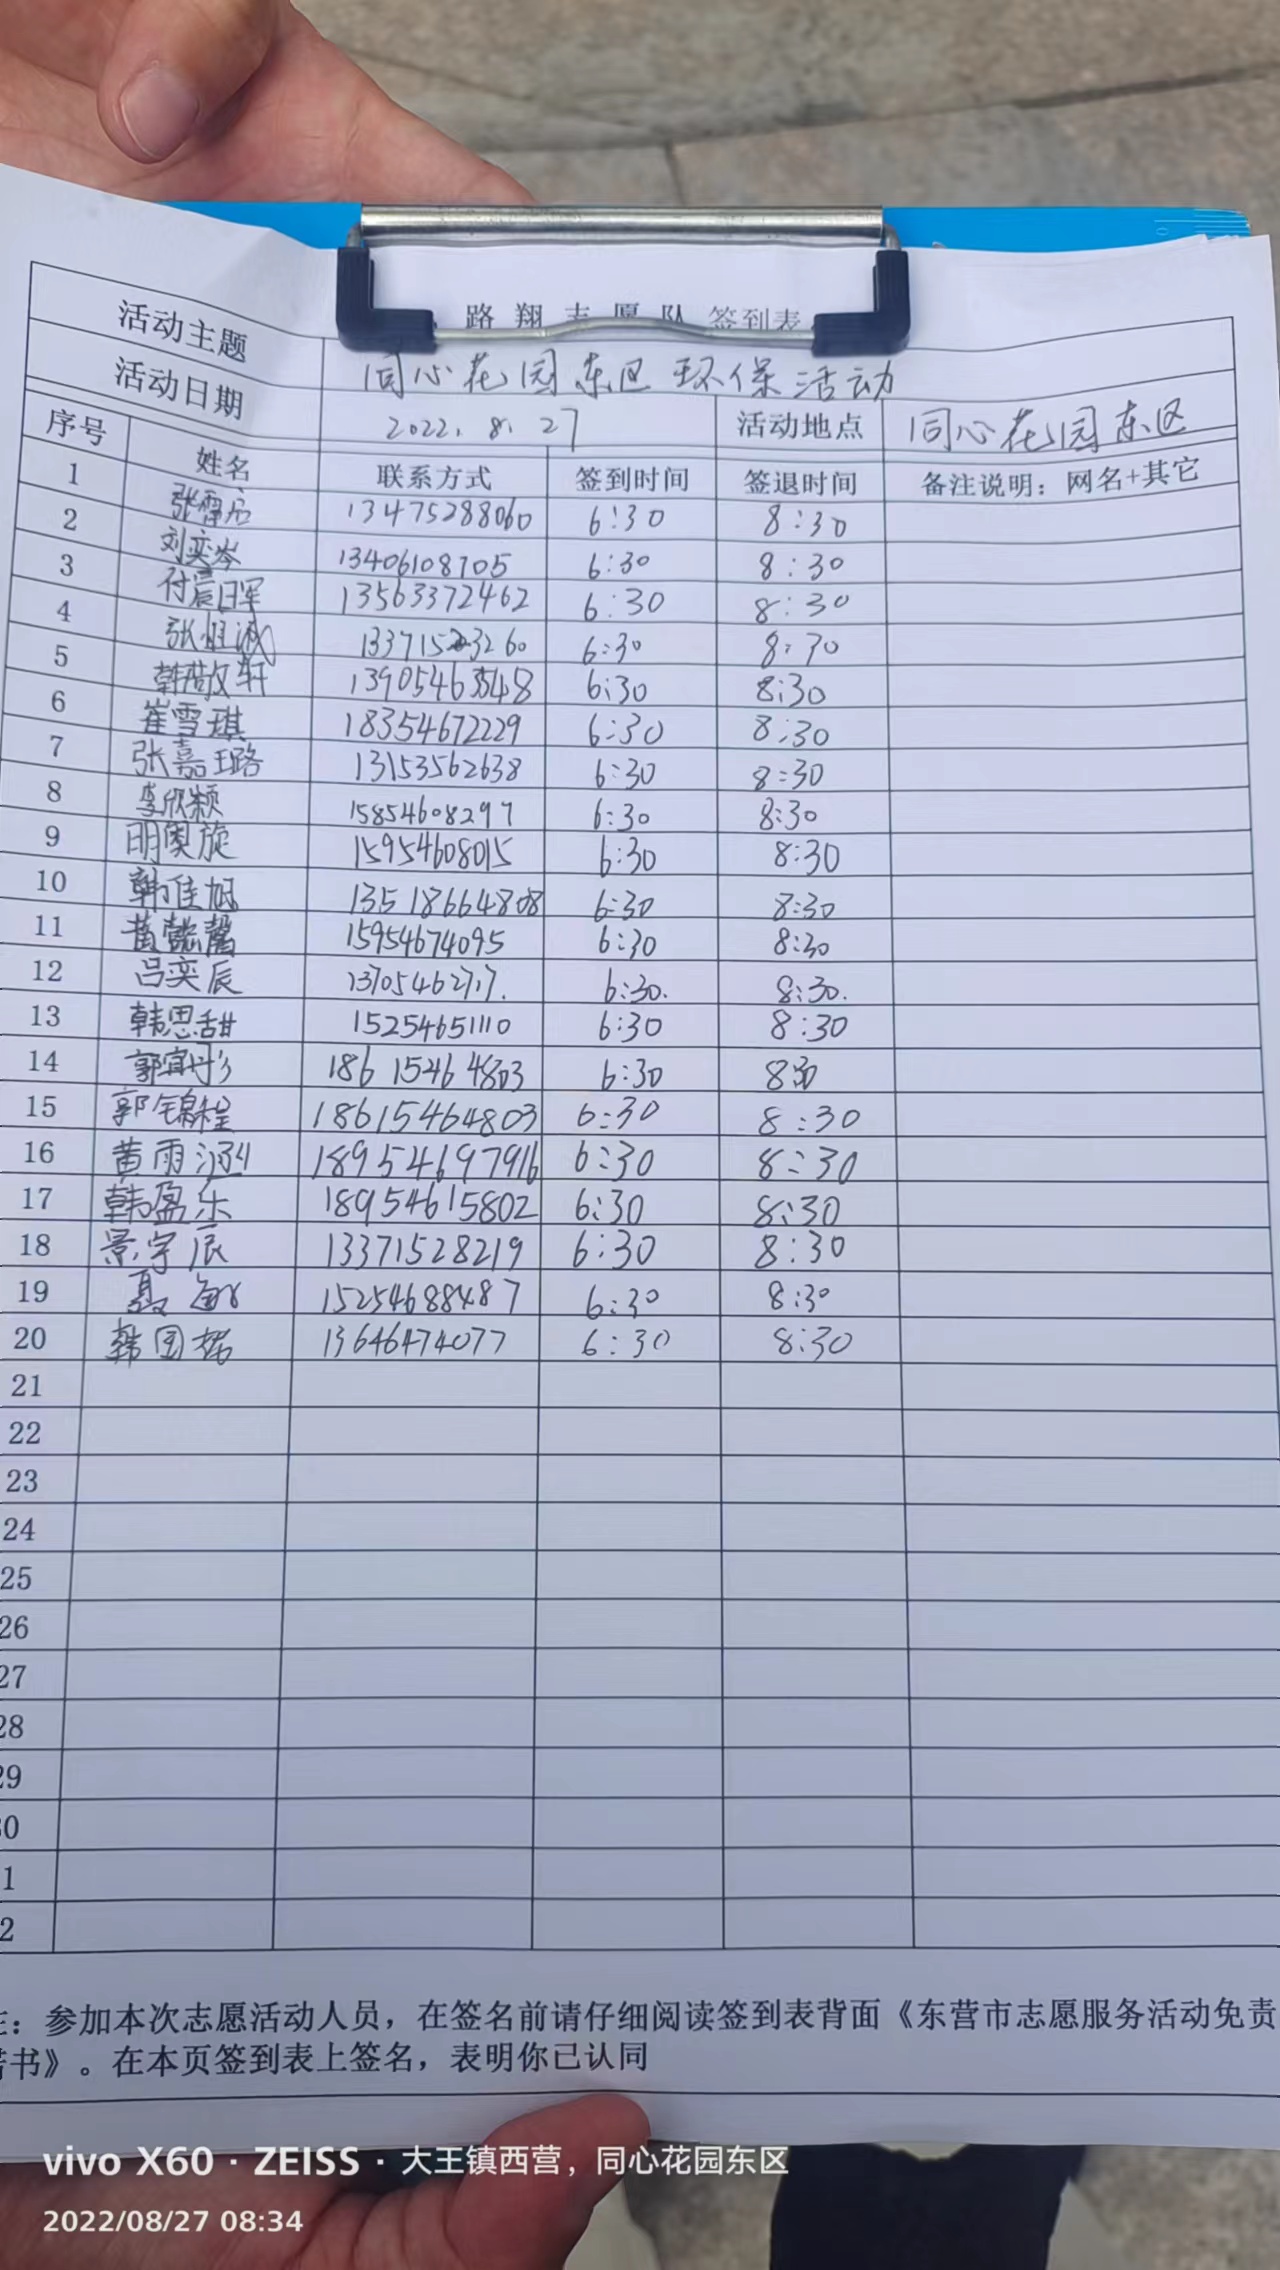 路翔志愿队 签到表
活动主题 同心花园东区环保活动
活动日期 2022.8.27 活动地点 同心花园东区
序号 姓名 联系方式 签到时间 签退时间 备注说明：网名+其它
1 13475288060 6:30 8:30
2 刘奕岑 13406108705 6:30 8:30
3 付晨军 13563372462 6:30 8:30
4 张恒诚 13371523260 6:30 8:30
5 韩敬轩 13905463548 6:30 8:30
6 崔雪琪 18354672229 6:30 8:30
7 张嘉璐 13153562638 6:30 8:30
8 李欣颖 15854608297 6:30 8:30
9 明奥旋 15954608015 6:30 8:30
10 韩佳旭 13518664808 6:30 8:30
11 黄懿馨 15954674095 6:30 8:30
12 吕奕辰 13705462717. 6:30. 8:30.
13 韩思甜 15254651110 6:30 8:30
14 18615464803 6:30 8:30
15 郭锦程 18615464803 6:30 8:30
16 黄雨涵 18954697916 6:30 8:30
17 韩盈乐 18954615802 6:30 8:30
18 景宇辰 13371528219 6:30 8:30
19 聂敏 15254688487 6:30 8:30
20 韩国栋 13646474077 6:30 8:30
21
22
23
24
25
26
27
28
29
30
1
2
：参加本次志愿活动人员，在签名前请仔细阅读签到表背面《东营市志愿服务活动免责
书》。在本页签到表上签名，表明你已认同
vivo X60 · ZEISS · 大王镇西营，同心花园东区
2022/08/27 08:34